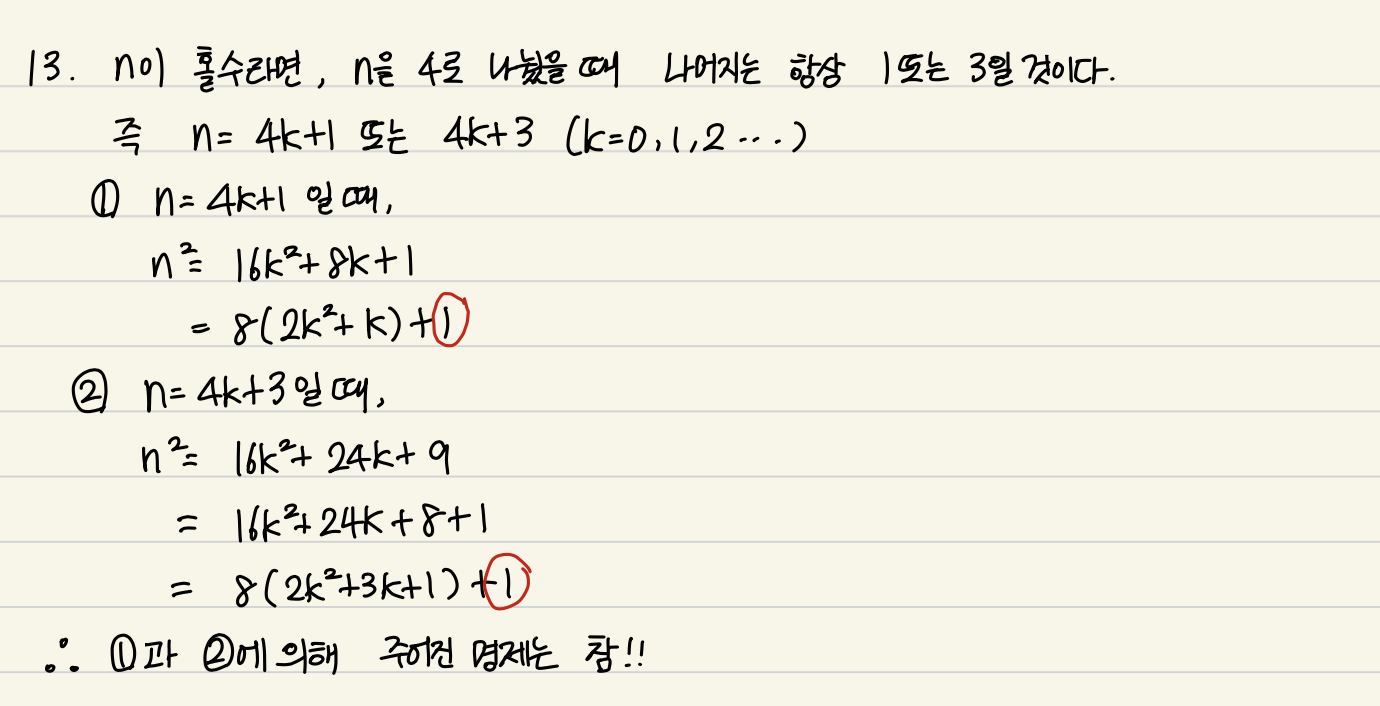 13. n이 홀수라면, n을 4로 나눴을 때 나머지는 항상 1또는 3일 것이다.
즉 n= 4k+1 또는 4k+3 (k=0,1,2 ...)
① n= 4k+1 일 때,
n²= 16k²+8k+1
= 8(2k²+k)+1
② n= 4k+3일 때,
n²= 16k²+24k+9
= 16k²+24k+8+1
= 8(2k²+3k+1)+1
∴ ①과 ②에 의해 주어진 명제는 참!!